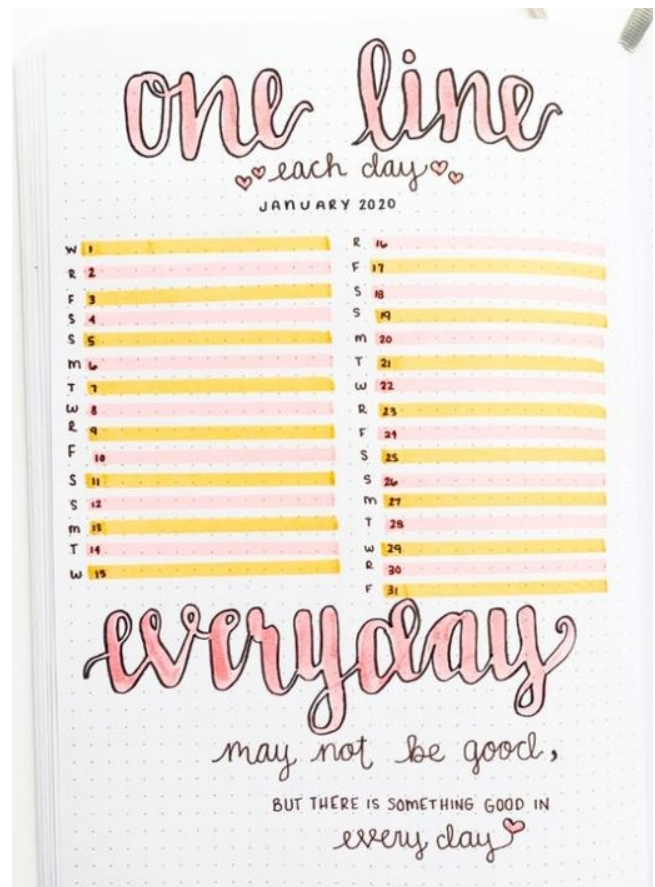 one line
each day
JANUARY 2020
W 1
R 2
F 3
S 4
S 5
m 6
T 7
W 8
R 9
F 10
S 11
S 12
m 13
T 14
W 15
R 16
F 17
S 18
S 19
m 20
T 21
W 22
R 23
F 24
S 25
S 26
m 27
T 28
W 29
R 30
F 31
everyday
may not be good,
BUT THERE IS SOMETHING GOOD IN
every day